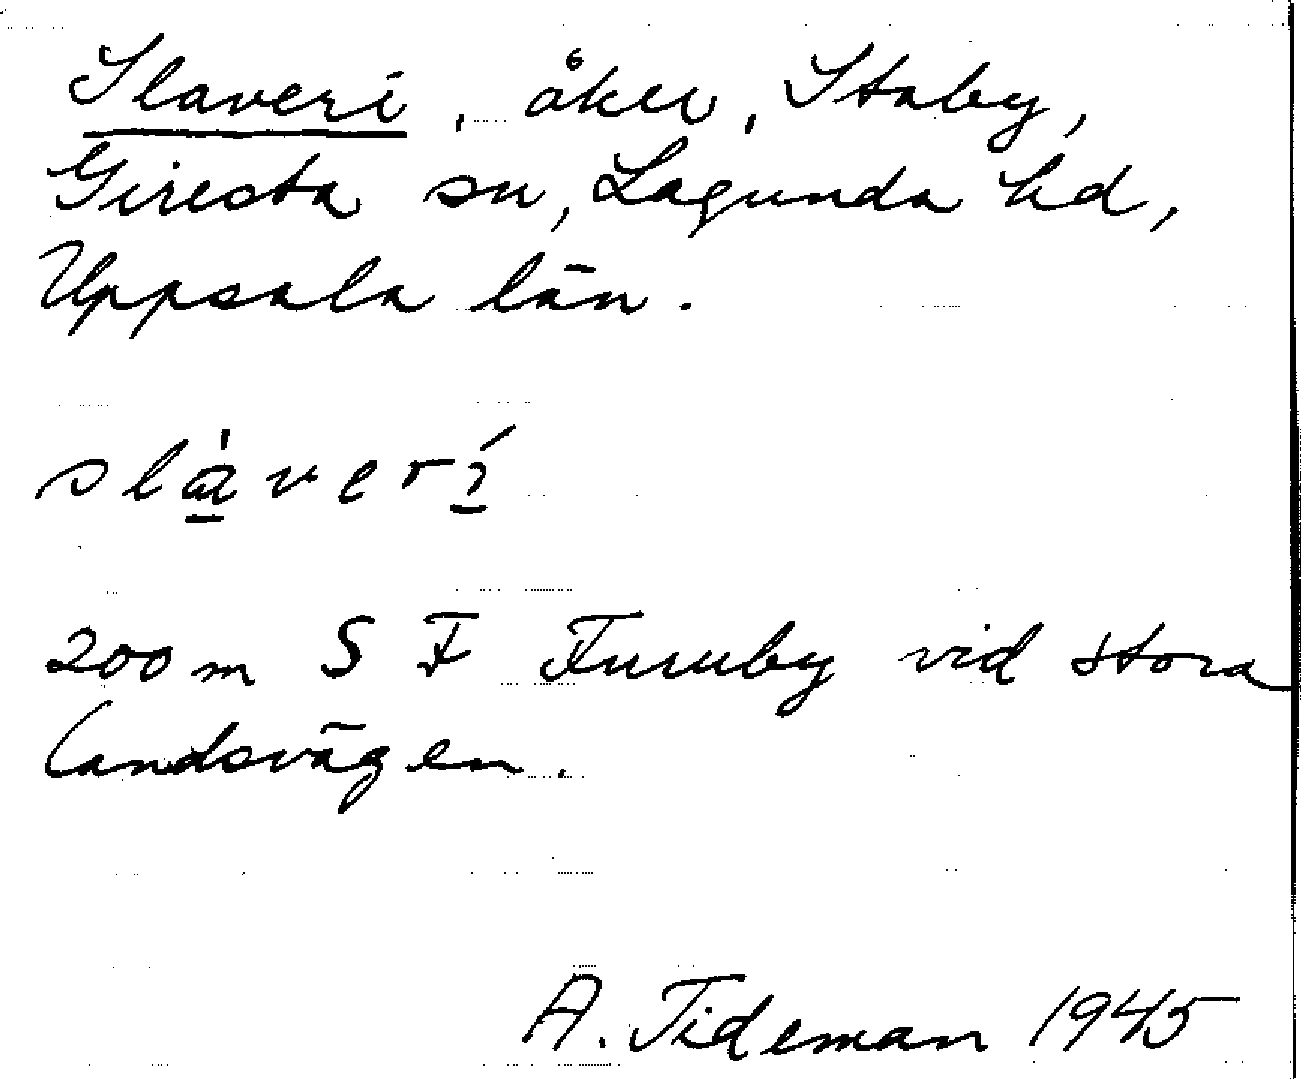 Slaveri, åker, Staby,
Giresta sn, Lagunda hd,
Uppsala län.
slàverí
200 m S F Furuby vid stora
landsvägen.
A. Tideman 1945